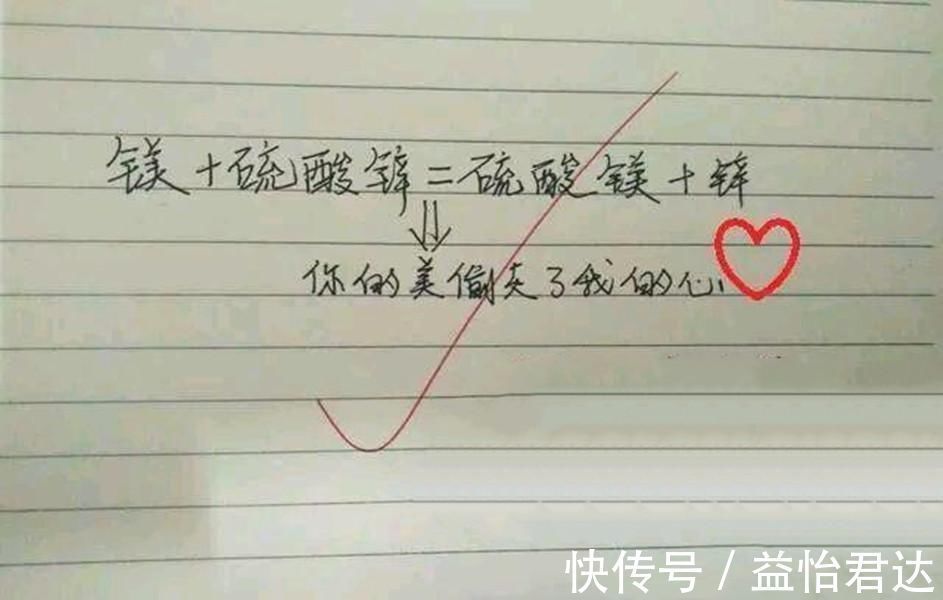 镁+硫酸锌=硫酸镁+锌
⇓
你的美偷走了我的心
快传号/益怡君达